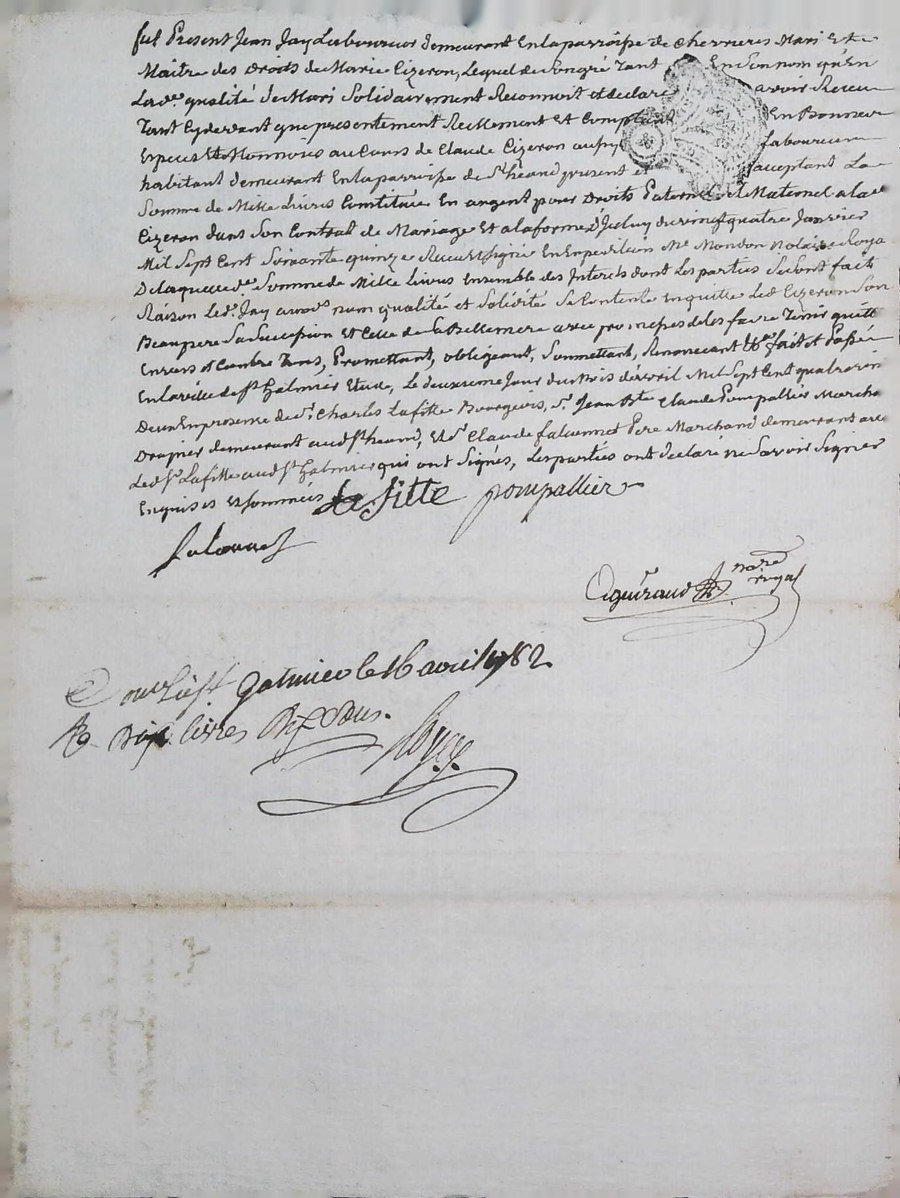 fut Present Jean Jay Laboureur demeurant En la parroipe de Chevrieres Mari Et
Maitre des Droits de Marie Cizeron, Lequel de Son gré Tant En Son nom qu'En
Lad.e qualité de Mari Solidairement Reconnoit et declare avoir Receu
Tant Cy devant que presentement Reellement Et Comptant En Bonnes
Especes Et Monnoies au Cours de Claude Cizeron Laboureur
habitant demeurant En la parroipe de St héand present et acceptant La
Somme de Mille Livres Constituée En argent pour Droits Paternel et Maternel a la
Cizeron dans Son Contrat de Mariage Et a la forme D'Iceluy du vingt quatre Janvier
Mil Sept Cent Soixante quinze Receu Et Signé En Expedition Me Mondon Notaire Roya
De laquelle de Somme de Mille Livres Ensemble des Interets dont Les parties Se Sont fait
Raison Led. Jay aud. nom qualité et Solidité Se Contente En quitte Led. Cizeron Son
Beaupere Sa Succession Et Celle de Sa Bellemere avec promepes de les faire Tenir quitte
Envers Et Contre Tous, Promettant, obligeant, Soumettant, Renoncant &a fait et Passé
En la ville de St Galmier Etude, Le deuxieme Jour du Mois d'Avril Mil Sept Cent quatre vin
Deux En presence de Sr. Charles Lafitte Bourgeois, Sr. Jean Bte Claude Pompallier Marcha
Drapier demeurant aud. St heand, Et Sr. Claude falconnet Pere Marchand demeurant avec
Led. Sr. Lafitte aud. St Galmier qui ont Signés, Les parties ont declaré ne Savoir Signer
Enquises et Sommées La fitte pompallier
falconnet
nore
royal
St galmier le 16 avril 1782
R. Dix livres Dix Sous.